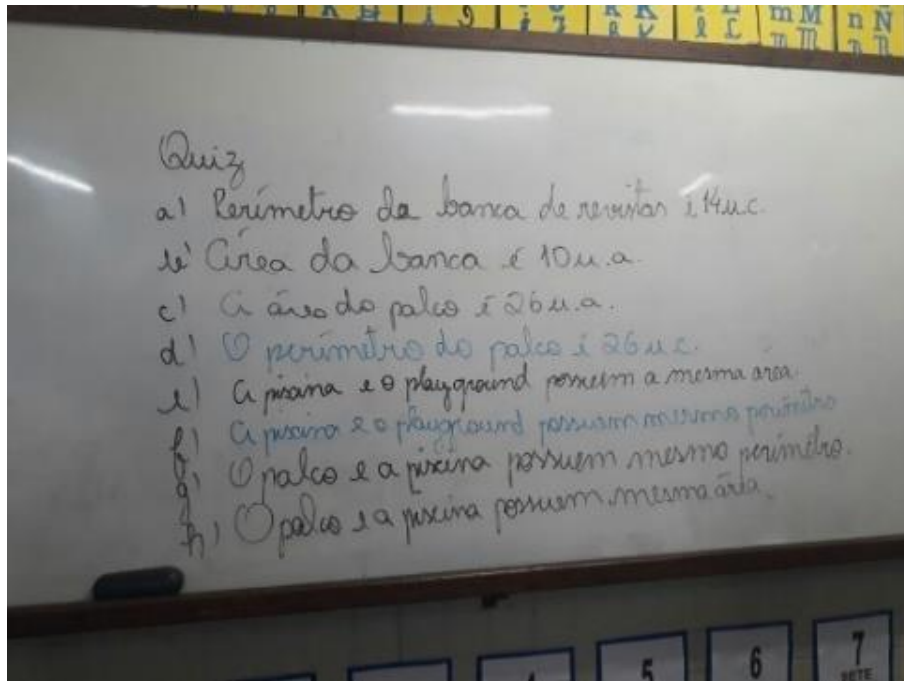 K k
m M
n N
Quiz
a) Perímetro da banca de revistas é 14u.c.
b) Área da banca é 10u.a.
c) A área do palco é 26u.a.
d) O perímetro do palco é 26u.c.
e) A piscina e o playground possuem a mesma área.
f) A piscina e o playground possuem mesmo perímetro
g) O palco e a piscina possuem mesmo perímetro.
h) O palco e a piscina possuem mesma área.
5 6 7
SETE